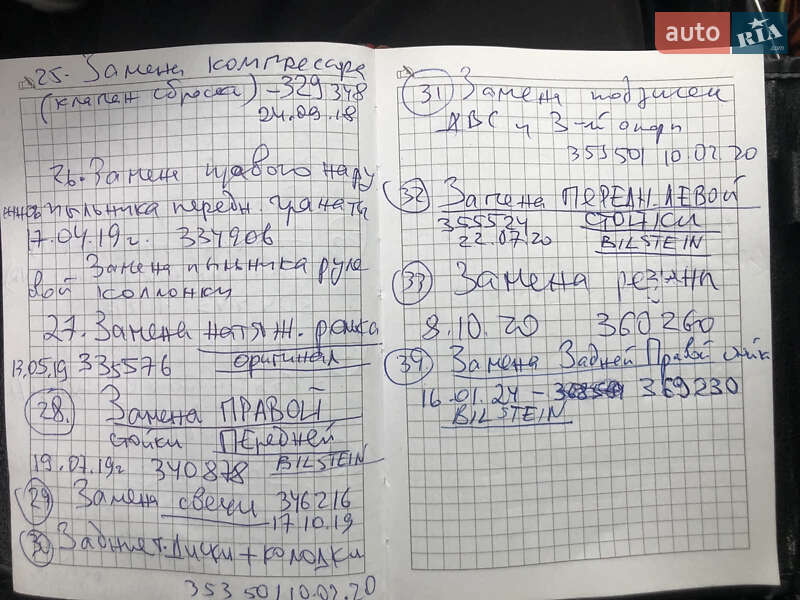 25. Замена компресара
(клапан сброса) - 329 348
24.09.18
26. Замен правого нару
жного пыльника передн. гранаты
17.04.19г. 334906
Замена пыльника руле
вой коллонки
27. Замена натяж. ролика
13.05.19 335576 оригинал
28. Замена ПРАВОЙ
стойки ПЕредней
19.07.19г 340878 BILSTEIN
29 Замена свечи 346216
17.10.19
30 Задние т. диски + колодки
353501 10.02.20
31 Замена подушек
АВС и 3-й опоры
353501 10.02.20
32 Замена ПЕРЕДН. ЛЕВОЙ
355524 СТОЙКИ
22.07.20 BILSTEIN
33 Замена резины
8.10.20 360260
34 Замена Задней Правой стойк
16.01.21 - 369230
BILSTEIN
auto RIA .com